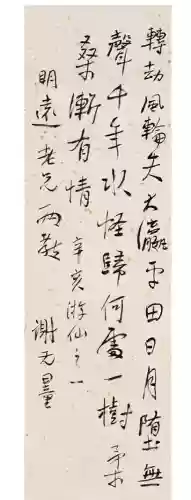 轉劫風輪失大瀛平田日月墮無
聲千年水怪歸何處一樹
桑漸有情 辛亥游仙之一
明遠老兄兩教 謝无量